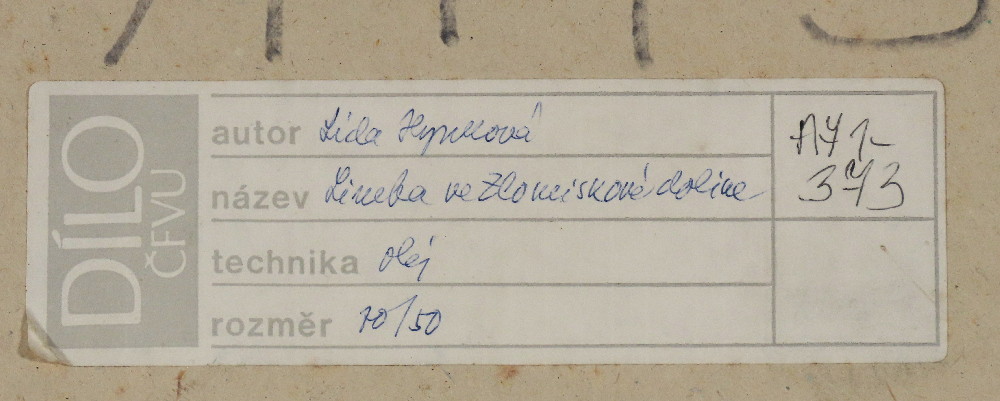 DÍLO
ČFVU
autor Lída Hynková
název Limba ve Zlomiskové doline
technika olej
rozměr 70/50
373